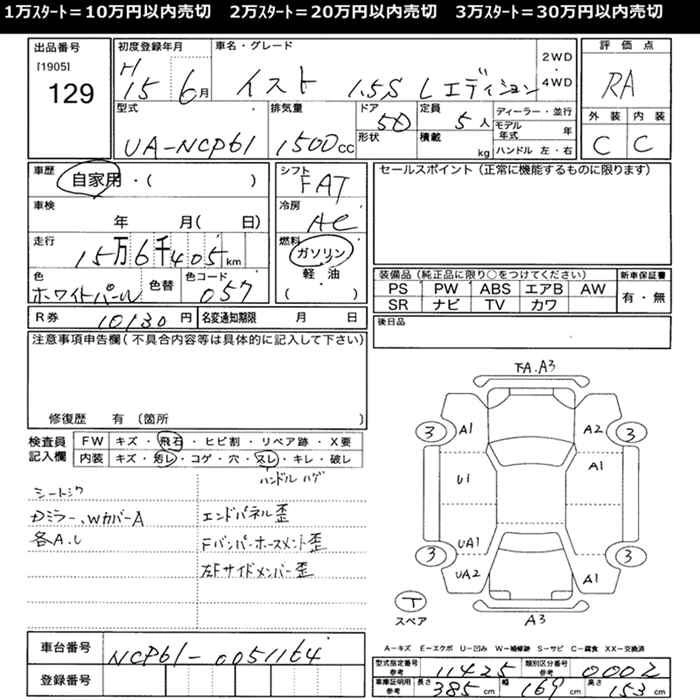 1万スタート＝10万円以内売切　2万スタート＝20万円以内売切　3万スタート＝30万円以内売切
出品番号
[1905]
129
初度登録年月
H15 6月
車名・グレード
イスト 1.5S Lエディション
2WD・4WD
評価点
RA
外装 内装
C C
型式
UA-NCP61
排気量
1500cc
ドア
5D
形状
定員
5人
積載
kg
ディーラー・並行
モデル年式 年
ハンドル 左・右
車歴
自家用・( )
車検
年 月( 日)
走行
15万6千405km
色
ホワイトパール
色替
色コード
057
シフト
FAT
冷房
AC
燃料
ガソリン
軽・油
( )
セールスポイント（正常に機能するものに限ります）
装備品（純正品に限り○をつけてください）
PS PW ABS エアB AW
SR ナビ TV カワ
新車保証書
有・無
R券 10130円
名変通知期限 月 日
後日品
注意事項申告欄(不具合内容等は具体的に記入して下さい)
修復歴 有(箇所 )
検査員記入欄
FW キズ・飛石・ヒビ割・リペア跡・X要
内装 キズ・汚レ・コゲ・穴・スレ・キレ・破レ
ハンドル ハゲ
シートシワ
Dミラー、WカバーA
各A.U
エンドパネル歪
Fバンパーホースメント歪
左Fサイドメンバー歪
下A.A3
3 A1 A2 3
U1 A1
3 UA1 3
UA2 A1
T
スペア
A3
A－キズ E－エクボ U－凹み W－補修跡 S－サビ C－腐食 XX－交換済
車台番号
NCP61-0051164
登録番号
型式指定番号 参考
11425
類別区分番号 参考
0002
車庫証明用 参考
長さ 385cm 幅 169cm 高さ 153cm